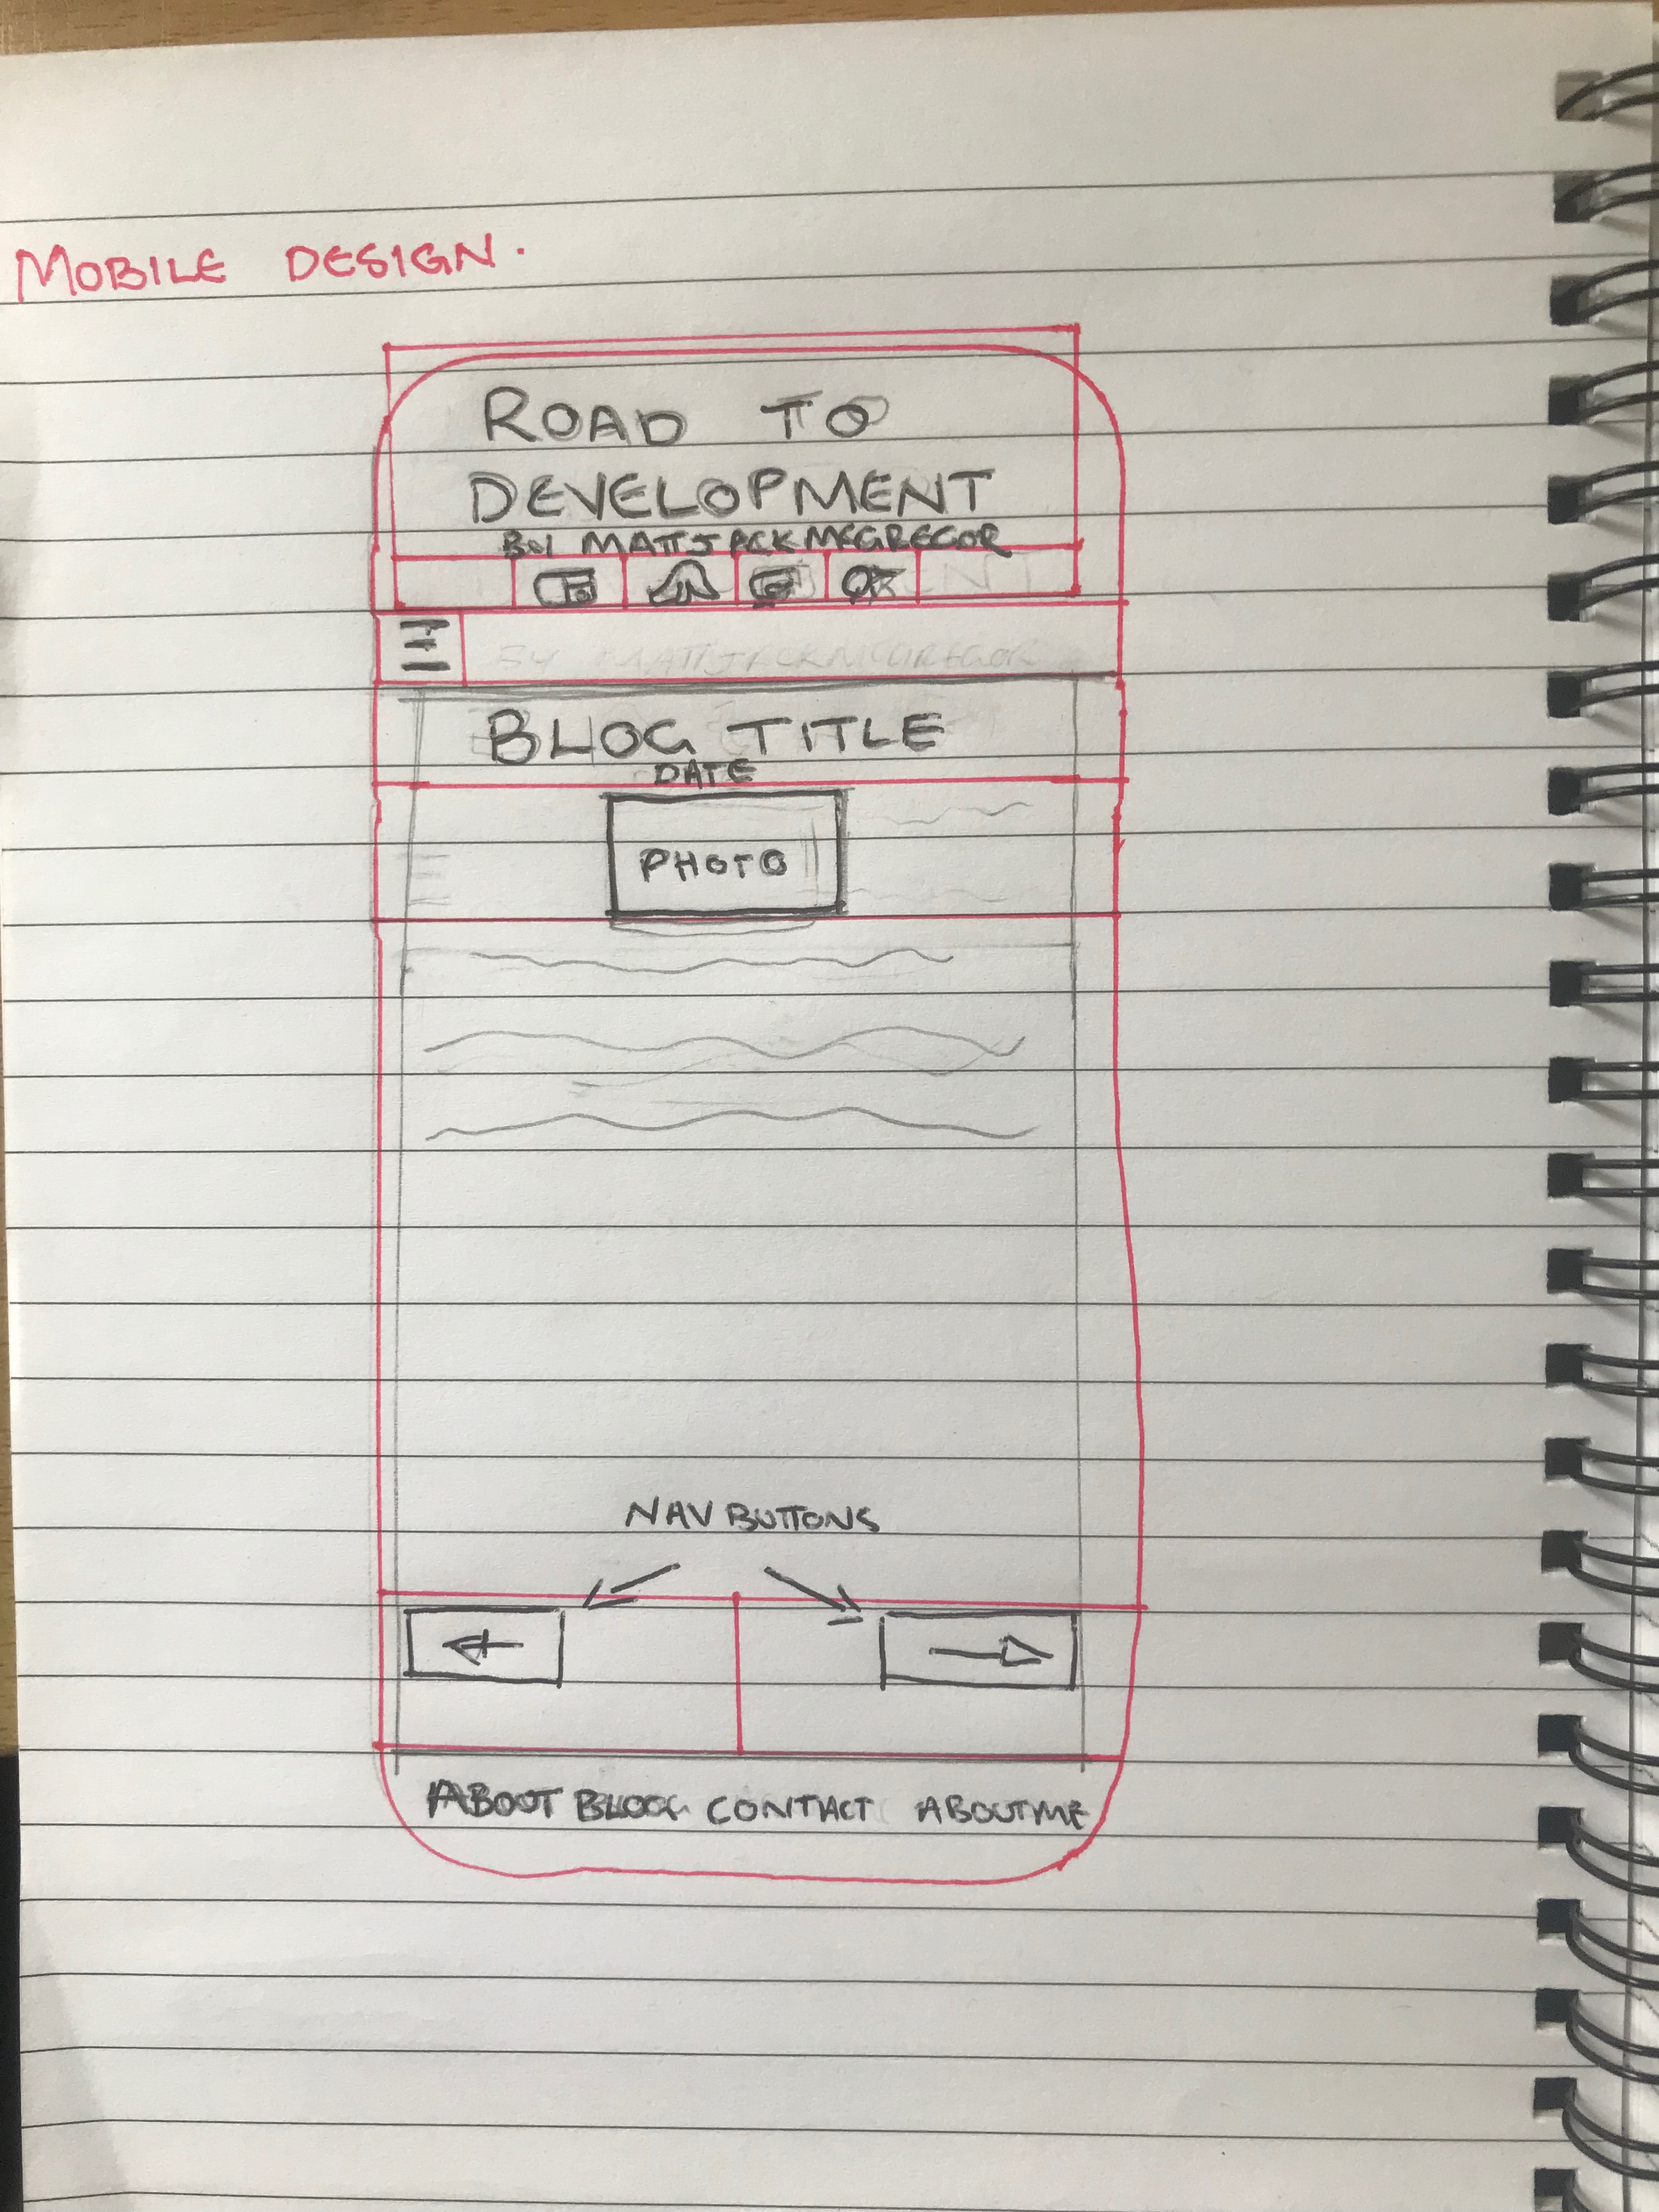 MOBILE DESIGN.
ROAD TO
DEVELOPMENT
BY MATTJACKMCGREGOR
BY MATTJACKMCGREGOR
BLOG TITLE
DATE
PHOTO
NAV BUTTONS
ABOUT BLOG CONTACT ABOUT ME